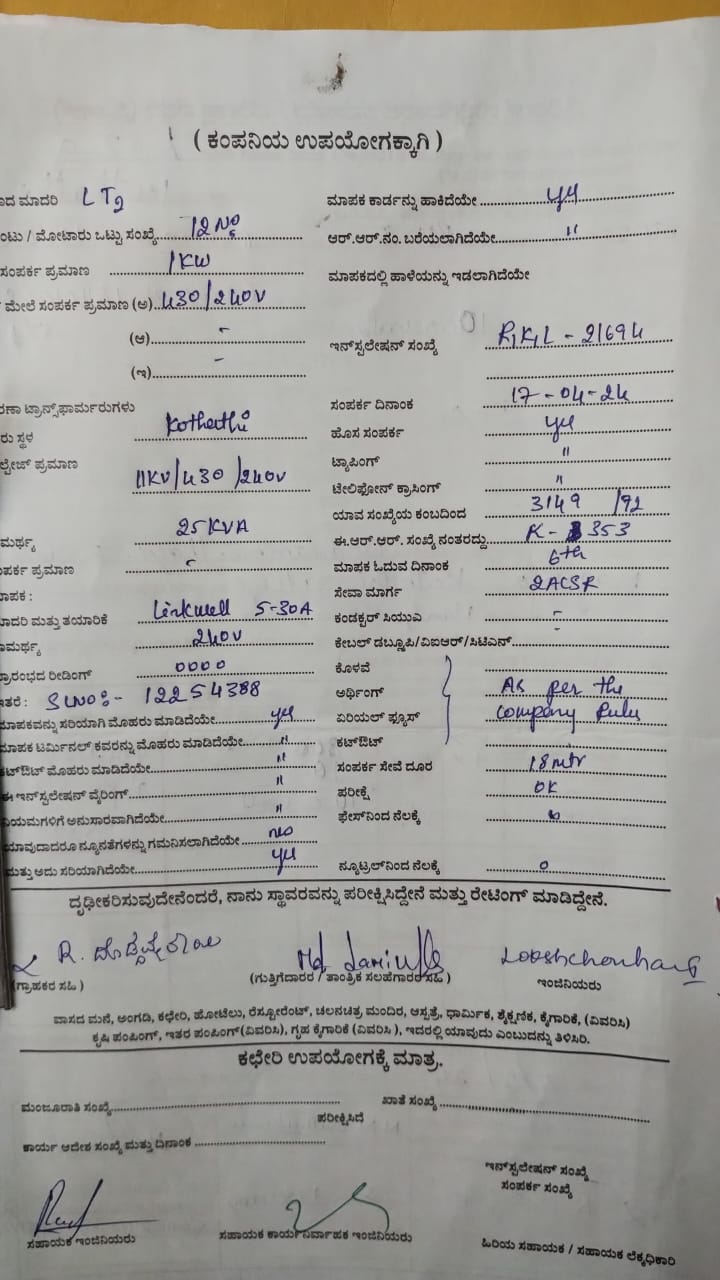 ( ಕಂಪನಿಯ ಉಪಯೋಗಕ್ಕಾಗಿ )
ಮಾದರಿ LT2
ಮಾಪಕ ಕಾರ್ಡನ್ನು ಹಾಕಿದೆಯೇ yes
/ ಮೋಟಾರು ಒಟ್ಟು ಸಂಖ್ಯೆ 12 Nos
ಆರ್.ಆರ್.ನಂ. ಬರೆಯಲಾಗಿದೆಯೇ "
ಸಂಪರ್ಕ ಪ್ರಮಾಣ 1KW
ಮಾಪಕದಲ್ಲಿ ಹಾಳೆಯನ್ನು ಇಡಲಾಗಿದೆಯೇ
ಮೇಲೆ ಸಂಪರ್ಕ ಪ್ರಮಾಣ (ಅ) 430/240V
(ಆ) -
ಇನ್‌ಸ್ಪಲೇಷನ್ ಸಂಖ್ಯೆ - 21694
(ಇ) -
ಟ್ರಾನ್ಸ್‌ಫಾರ್ಮರುಗಳು
ಸಂಪರ್ಕ ದಿನಾಂಕ 17-04-24
ಸ್ಥಳ Kothathi
ಹೊಸ ಸಂಪರ್ಕ yes
ಪ್ರಮಾಣ 11KV/430/240V
ಟ್ಯಾಪಿಂಗ್ "
ಟೆಲಿಫೋನ್ ಕ್ರಾಸಿಂಗ್ "
ಯಾವ ಸಂಖ್ಯೆಯ ಕಂಬದಿಂದ 3149 /92
25KVA
ಈ.ಆರ್.ಆರ್. ಸಂಖ್ಯೆ ನಂತರದ್ದು K- 353
ಪ್ರಮಾಣ -
ಮಾಪಕ ಓದುವ ದಿನಾಂಕ 6th
ಸೇವಾ ಮಾರ್ಗ 2ACSR
ಮತ್ತು ತಯಾರಿಕೆ Linkwell 5-30A
ಕಂಡಕ್ಟರ್ ಸಿಯುಎ -
240V
ಕೇಬಲ್ ಡಬ್ಲೂಪಿ/ವಿಐಆರ್/ಸಿಟಿಎನ್ -
ರೀಡಿಂಗ್ 0000
ಕೊಳವೆ
SLNO:- 12254388
ಅರ್ಥಿಂಗ್ As per the
ಮಾಪಕವನ್ನು ಸರಿಯಾಗಿ ಮೊಹರು ಮಾಡಿದೆಯೇ yes
ಏರಿಯಲ್ ಫ್ಯೂಸ್ company Rules
ಮಾಪಕ ಟರ್ಮಿನಲ್ ಕವರನ್ನು ಮೊಹರು ಮಾಡಿದೆಯೇ "
ಕಟ್‌ಔಟ್
ಕಟ್‌ಔಟ್ ಮೊಹರು ಮಾಡಿದೆಯೇ "
ಸಂಪರ್ಕ ಸೇವೆ ದೂರ 18mtr
ಈ ಇನ್‌ಸ್ಪಲೇಷನ್ ವೈರಿಂಗ್ "
ಪರೀಕ್ಷೆ OK
ನಿಯಮಗಳಿಗೆ ಅನುಸಾರವಾಗಿದೆಯೇ "
ಫೇಸ್‌ನಿಂದ ನೆಲಕ್ಕೆ
ಯಾವುದಾದರೂ ನ್ಯೂನತೆಗಳನ್ನು ಗಮನಿಸಲಾಗಿದೆಯೇ no
ಮತ್ತು ಅದು ಸರಿಯಾಗಿದೆಯೇ yes
ನ್ಯೂಟ್ರಲ್‌ನಿಂದ ನೆಲಕ್ಕೆ 0
ದೃಢೀಕರಿಸುವುದೇನೆಂದರೆ, ನಾನು ಸ್ಥಾವರವನ್ನು ಪರೀಕ್ಷಿಸಿದ್ದೇನೆ ಮತ್ತು ರೇಟಿಂಗ್ ಮಾಡಿದ್ದೇನೆ.
(ಗ್ರಾಹಕರ ಸಹಿ ) (ಗುತ್ತಿಗೆದಾರರ / ತಾಂತ್ರಿಕ ಸಲಹೆಗಾರರ ಸಹಿ ) ಇಂಜಿನಿಯರು
ವಾಸದ ಮನೆ, ಅಂಗಡಿ, ಕಛೇರಿ, ಹೋಟೆಲು, ರೆಸ್ಟೋರೆಂಟ್, ಚಲನಚಿತ್ರ ಮಂದಿರ, ಆಸ್ಪತ್ರೆ, ಧಾರ್ಮಿಕ, ಶೈಕ್ಷಣಿಕ, ಕೈಗಾರಿಕೆ, (ವಿವರಿಸಿ)
ಕೃಷಿ ಪಂಪಿಂಗ್, ಇತರ ಪಂಪಿಂಗ್(ವಿವರಿಸಿ), ಗೃಹ ಕೈಗಾರಿಕೆ (ವಿವರಿಸಿ ), ಇದರಲ್ಲಿ ಯಾವುದು ಎಂಬುದನ್ನು ತಿಳಿಸಿರಿ.
ಕಛೇರಿ ಉಪಯೋಗಕ್ಕೆ ಮಾತ್ರ.
ಮಂಜೂರಾತಿ ಸಂಖ್ಯೆ ಖಾತೆ ಸಂಖ್ಯೆ
ಪರೀಕ್ಷಿಸಿದೆ
ಕಾರ್ಯ ಆದೇಶ ಸಂಖ್ಯೆ ಮತ್ತು ದಿನಾಂಕ
ಇನ್‌ಸ್ಪಲೇಷನ್ ಸಂಖ್ಯೆ
ಸಂಪರ್ಕ ಸಂಖ್ಯೆ
ಸಹಾಯಕ ಇಂಜಿನಿಯರು ಸಹಾಯಕ ಕಾರ್ಯನಿರ್ವಾಹಕ ಇಂಜಿನಿಯರು ಹಿರಿಯ ಸಹಾಯಕ / ಸಹಾಯಕ ಲೆಕ್ಕಧಿಕಾರಿ